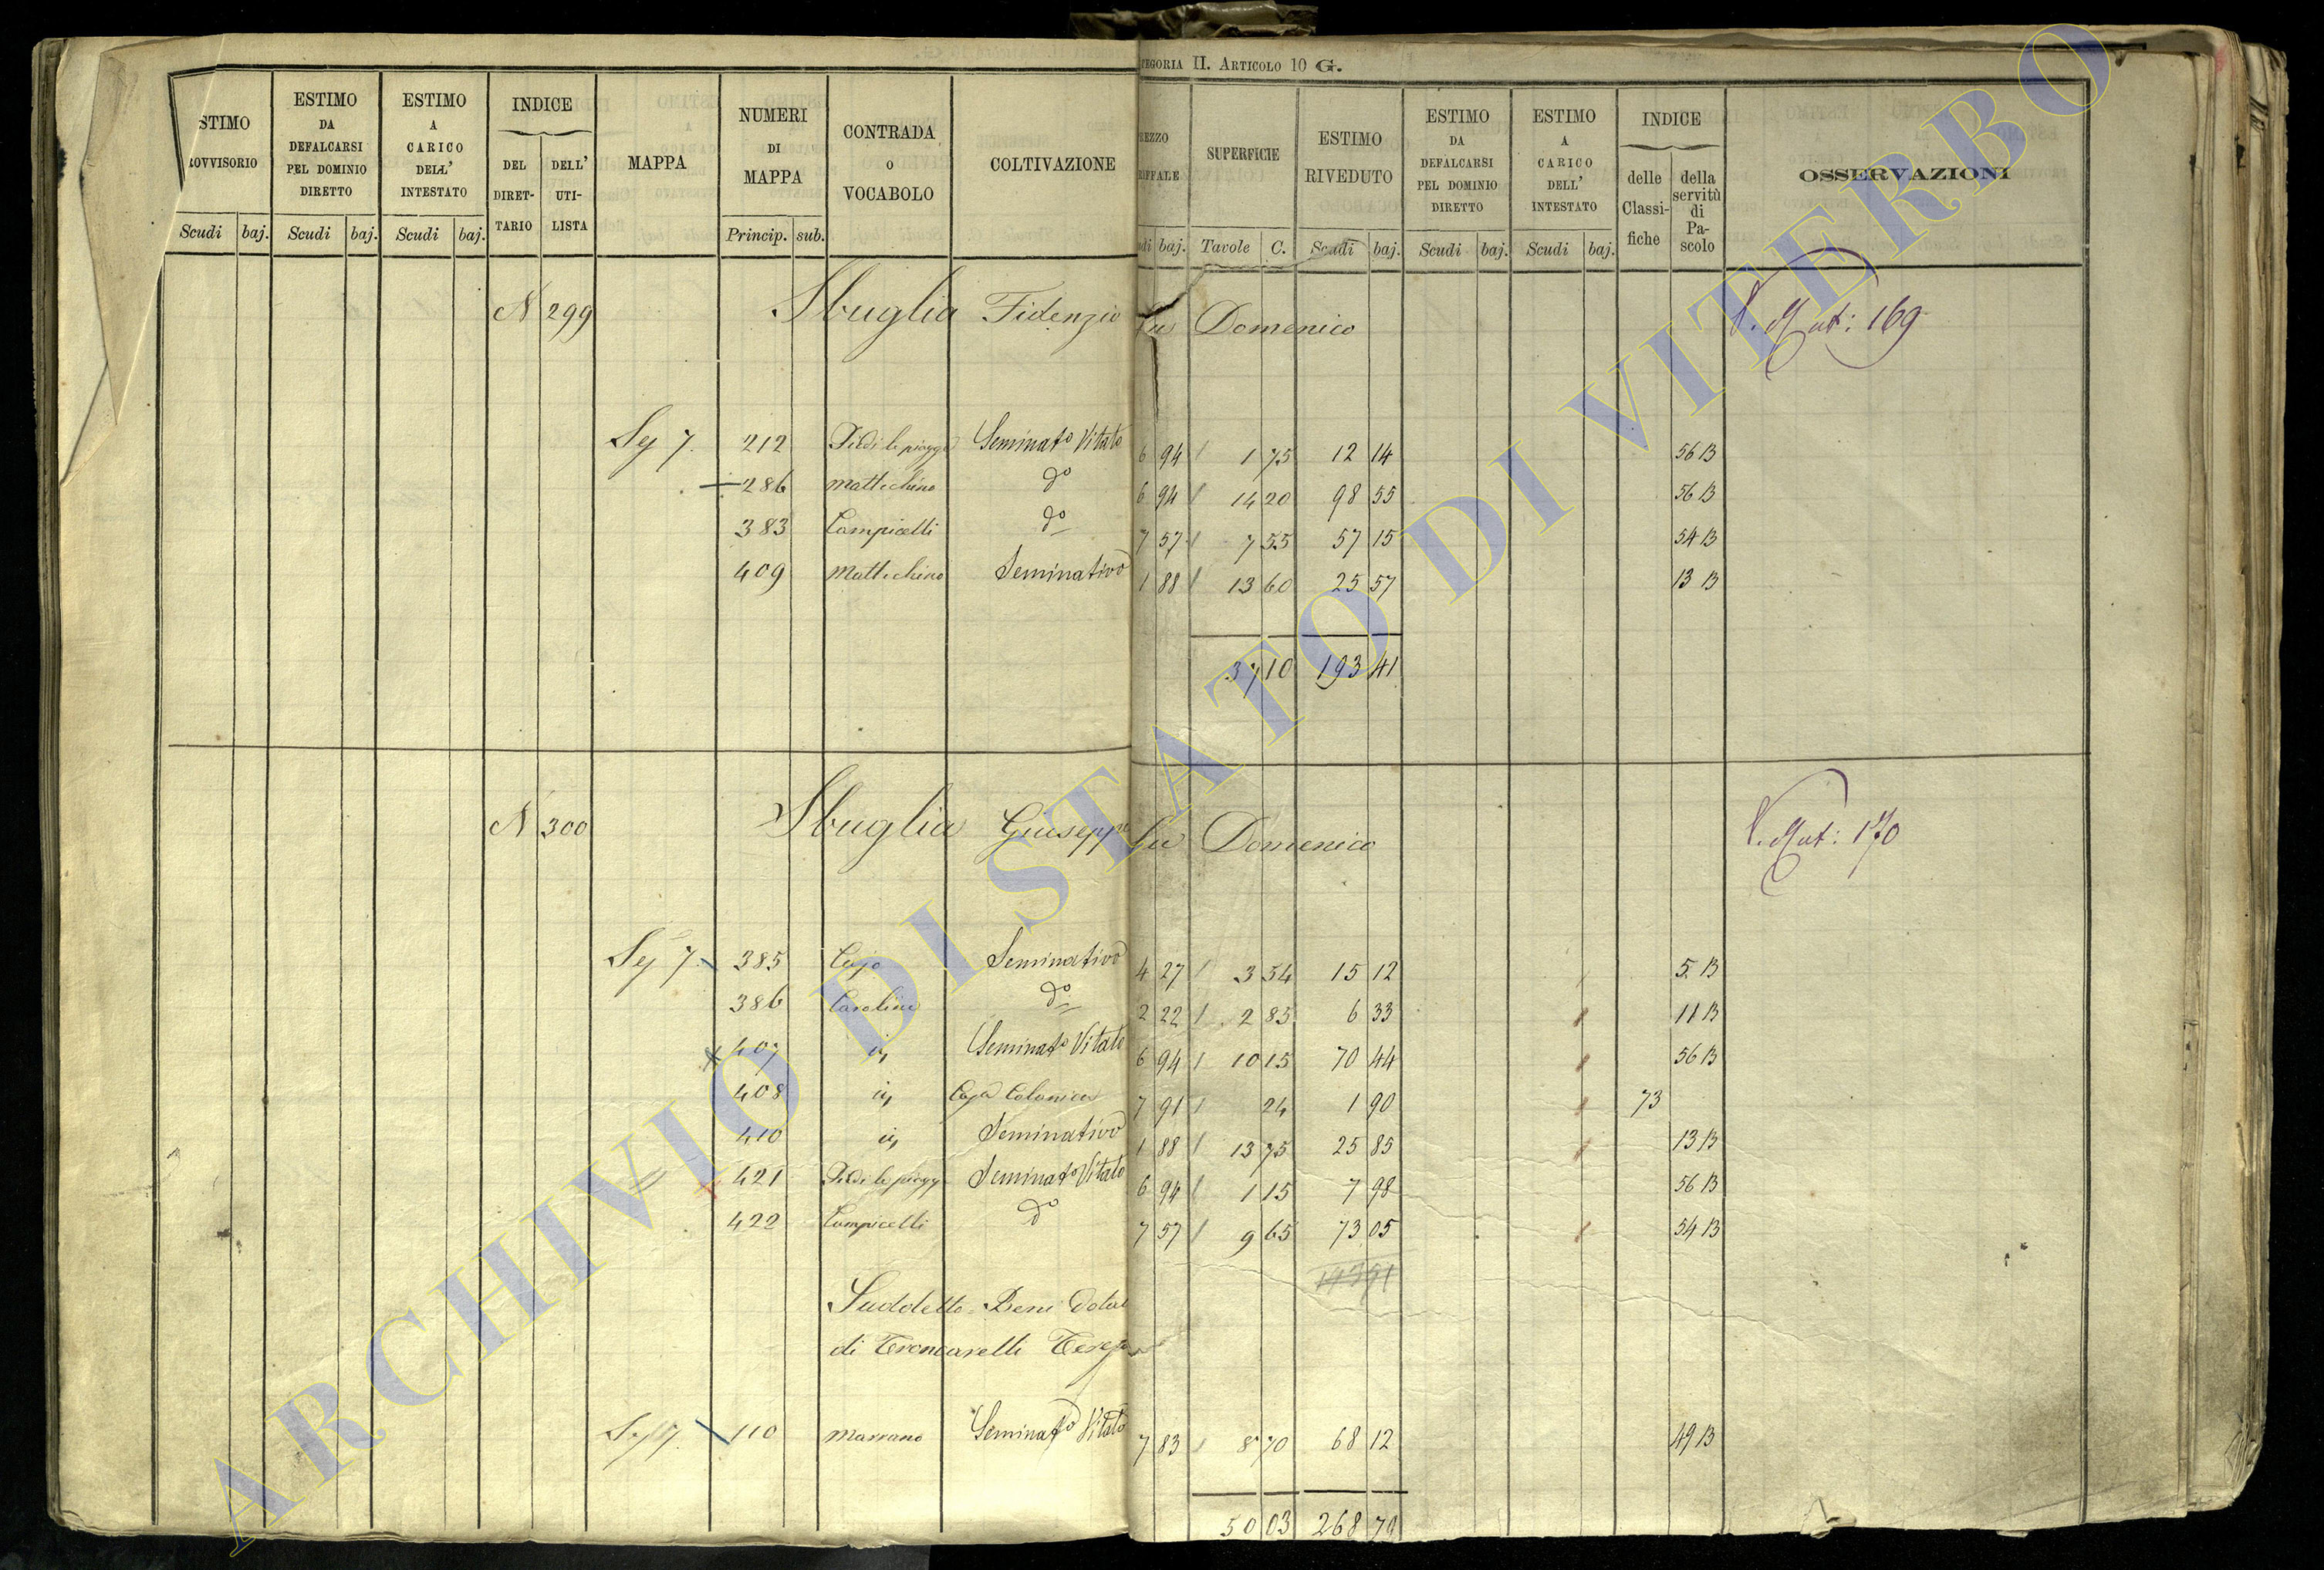 CATEGORIA II. ARTICOLO 10 G.
ESTIMO PROVVISORIO Scudi baj.
ESTIMO DA DEFALCARSI PEL DOMINIO DIRETTO Scudi baj.
ESTIMO A CARICO DELL' INTESTATO Scudi baj.
INDICE DEL DIRET-TARIO DELL' UTI-LISTA
MAPPA
NUMERI DI MAPPA Princip. sub.
CONTRADA o VOCABOLO
COLTIVAZIONE
REZZO RIFFALE udi baj.
SUPERFICIE Tavole C.
ESTIMO RIVEDUTO Scudi baj.
ESTIMO DA DEFALCARSI PEL DOMINIO DIRETTO Scudi baj.
ESTIMO A CARICO DELL' INTESTATO Scudi baj.
INDICE delle Classi-fiche della servitù di Pa-scolo
OSSERVAZIONI
N 299 Sbuglia Fidenzio fu Domenico V. Mut: 169
Sez 7. 212 Seminato Vitato 6 94 1 75 12 14 56 B
286 Mattichino do 6 94 14 20 98 55 56 B
383 Campicelli do 7 57 7 55 57 15 54 B
409 Mattichino Seminativo 1 88 13 60 25 57 13 B
37 10 193 41
N 300 Sbuglia Giuseppe fu Domenico V. Mut: 170
Sez 7. 385 Seminativo 4 27 3 54 15 12 5 B
386 do 2 22 2 85 6 33 11 B
407 Seminato Vitato 6 94 10 15 70 44 56 B
408 Casa Colonica 7 91 24 1 90 73
410 Seminativo 1 88 13 75 25 85 13 B
421 Seminato Vitato 6 94 1 15 7 98 56 B
422 Campicelli do 7 57 9 65 73 05 54 B
Suddetto = Beni Dotali
di Troncarelli Teresa
Sez 7. 110 Marrano Seminato Vitato 7 83 8 70 68 12 49 B
50 03 268 79
ARCHIVIO DI STATO DI VITERBO